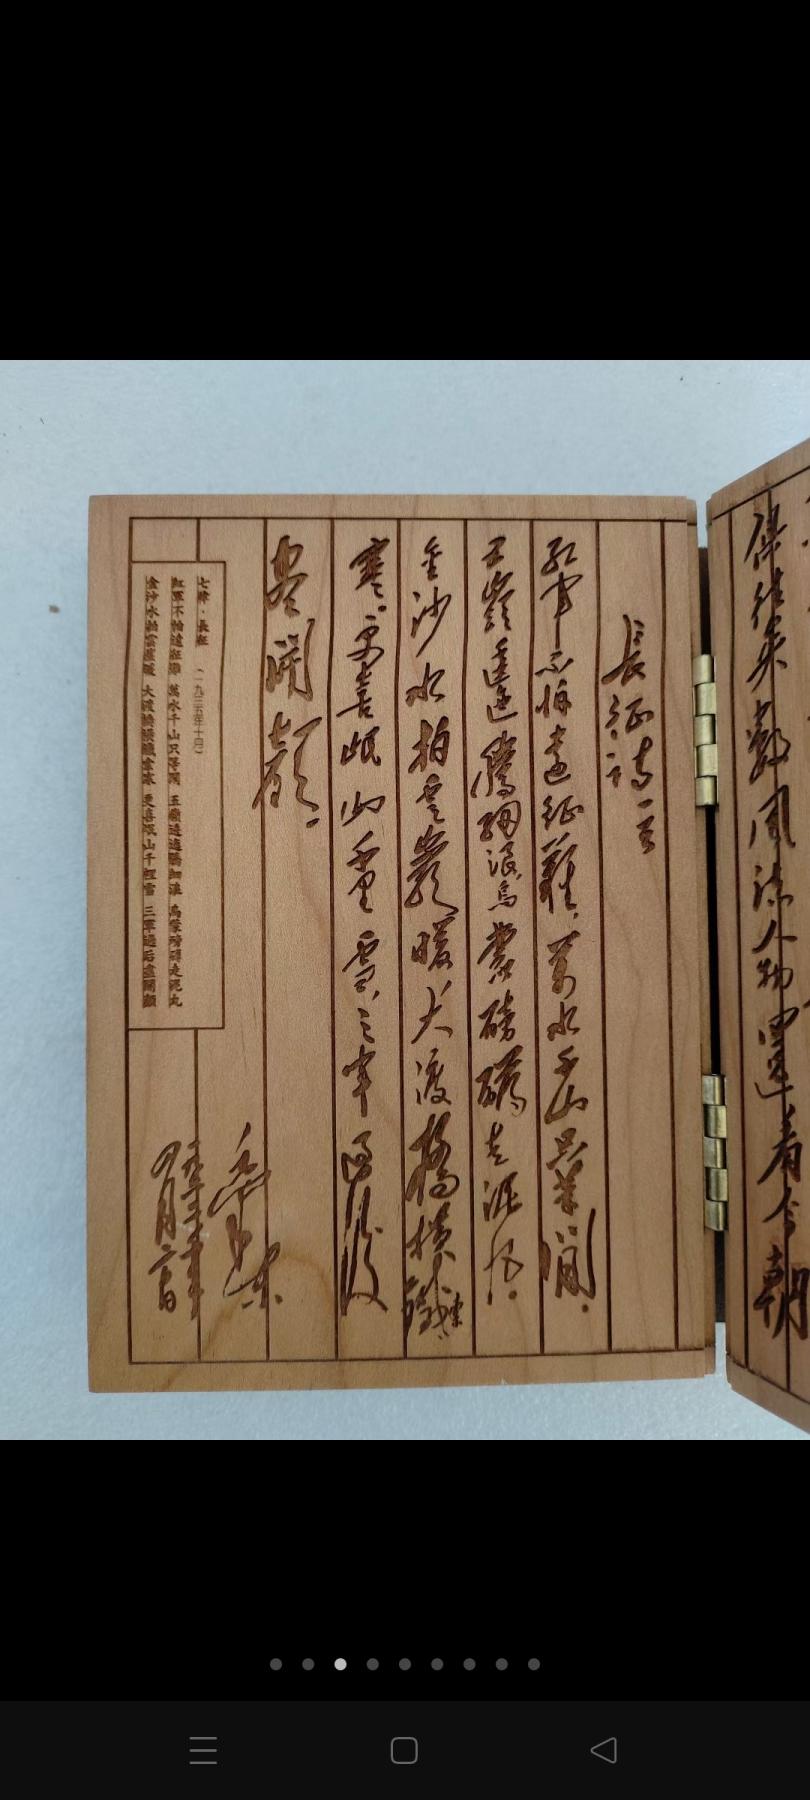 俱往矣數風流人物還看今朝
長征詩一首
紅軍不怕遠征難，萬水千山只等閒。
五嶺逶迤騰細浪，烏蒙磅礴走泥丸。
金沙水拍雲巖暖，大渡橋橫鐵索
寒。更喜岷山千里雪，三軍過後
盡開顏。
毛澤東
七律·長征 （一九三五年十月）
紅軍不怕遠征難 萬水千山只等閑 五嶺逶迤騰細浪 烏蒙磅礴走泥丸
金沙水拍雲崖暖 大渡橋橫鐵索寒 更喜岷山千里雪 三軍過后盡開顏